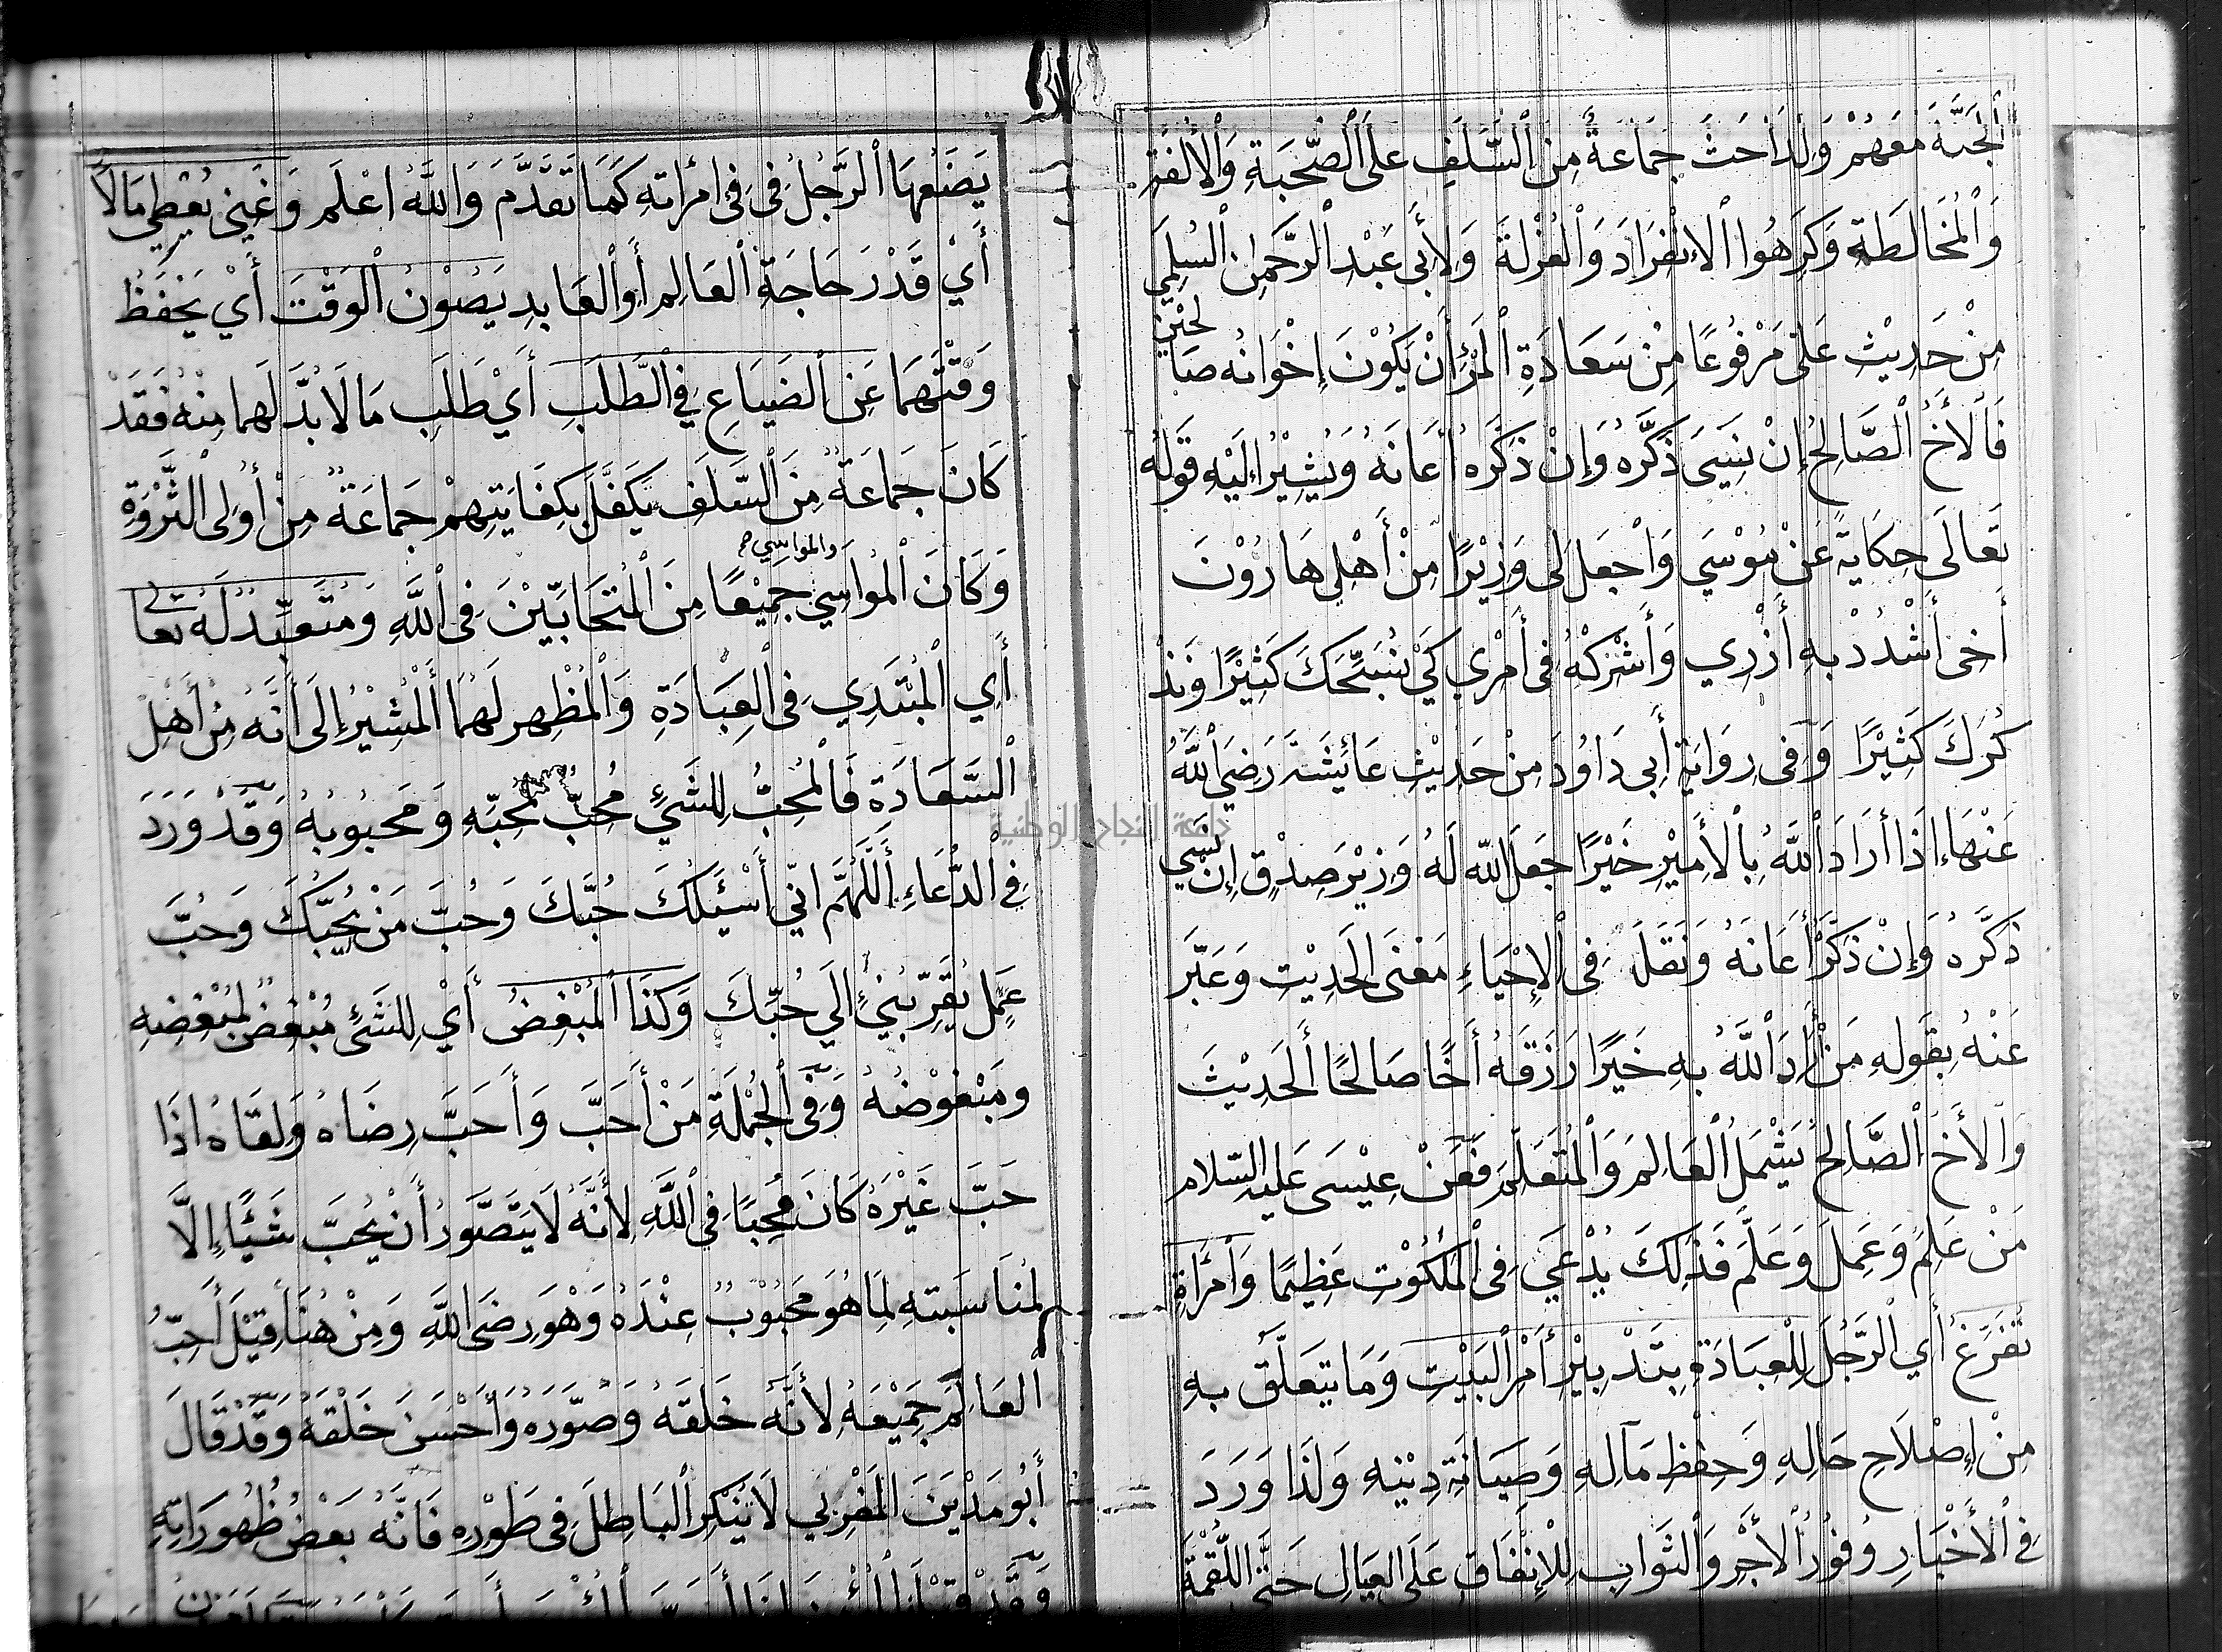 الْجَنَّةَ مَعَهُمْ وَلِذَا حَثَّ جَمَاعَةٌ مِنَ السَّلَفِ عَلَى الصُّحْبَةِ وَالْأُلْفَةِ
وَالْمُخَالَطَةِ وَكَرِهُوا الْإِنْفِرَادَ وَالْعُزْلَةَ وَلِأَبِي عَبْدِ الرَّحْمٰنِ السُّلَمِي
مِنْ حَدِيْثِ عَلَى مَرْفُوعًا مِنْ سَعَادَةِ الْمَرْءِ أَنْ يَكُوْنَ إِخْوَانُه صَالِحِيْنَ
فَالْأَخُ الصَّالِحُ إِنْ نَسِيَ ذَكَّرَهُ وَإِنْ ذَكَرَهُ أَعَانَهُ وَيُشِيْرُ إِلَيْهِ قَوْلُه
تَعَالَى حِكَايَةً عَنْ مُوْسَي وَاجْعَلْ لِى وَزِيْرًا مِّنْ أَهْلِي هَارُوْنَ
أَخِى أُشْدُدْ بِهِ أَزْرِي وَأَشْرِكْهُ فِى أَمْرِي كَيْ نُسَبِّحَكَ كَثِيْرًا وَنَذْ
كُرَكَ كَثِيْرًا وَفِى رِوَايَةِ أَبِى دَاوُدَ مِنْ حَدِيْثِ عَائِشَةَ رَضِيَ اللَّهُ
عَنْهَا إِذَا أَرَادَ اللَّهُ بِالْأَمِيْرِ خَيْرًا جَعَلَ اللّه لَهُ وَزِيْرَ صِدْقٍ إِنْ نَسِيَ
ذَكَّرَهُ وَإِنْ ذَكَرَ أَعَانَهُ وَنَقَلَ فِى الْإِحْيَاءِ مَعْنَى الْحَدِيْثِ وَعَبَّرَ
عَنْهُ بِقَوْلِهِ مَنْ أَرَادَ اللَّهُ بِهِ خَيْرًا رَزَقَهُ أَخًا صَالِحًا الْحَدِيْثَ
وَالْأَخُ الصَّالِحُ يَشْمَلُ الْعَالِمَ وَالْمُتَعَلِّمَ فَعَنْ عِيْسَى عَلَيْهِ السّلام
مَنْ عَلِمَ وَعَمِلَ وَعَلَّمَ فَذٰلِكَ يُدْعَي فِى الْمَلَكُوْتِ عَظِيْمًا وَامْرَأَةٍ
تُفَرِّغُ أَي الرَّجُلَ لِلْعِبَادَةِ بِتَدْبِيْرِ أَمْرِ الْبَيْتِ وَمَا يَتَعَلَّقُ بِهِ
مِنْ إِصْلَاحِ حَالِهِ وَحِفْظِ مَآلِهِ وَصِيَانَةِ دِيْنِهِ وَلَذَا وَرَدَ
فِى الْأَخْبَارِ وُفُوْرُ الْأَجْرِ وَالثَّوَابِ لِلْإِنْفَاقِ عَلَى الْعِيَالِ حَتَّى اللُّقْمَةَ
يَضَعُهَا الرَّجُلُ فِى فِى امْرَأَتِهِ كَمَا تَقَدَّمَ وَاللَّهُ اعْلَم وَغَنِى يُعْطِي مَالًا
أَيْ قَدْرَ حَاجَةِ الْعَالِمِ أَوِ الْعَابِدِ يَصُوْنُ الْوَقْتَ أَيْ يَحْفَظُ
وَقْتَهُمَا عَنِ الضَّيَاعِ فِي الطَّلَبِ أَيْ طَلَبِ مَا لَا بُدَّ لَهما مِنْهُ فَقَدْ
كَانَ جَمَاعَةٌ مِنَ السَّلَفِ يَكَفَّلُ بِكِفَايَتِهِمْ جَمَاعَةٌ مِنْ أُولِى الثَّرْوَةِ
وَكَانَ الْمُوَاسِي والمواسي جَمِيْعًا مِنَ الْمُتَحَابِّيْنَ فِى اللَّهِ وَمُتَعَبِّدٌ لَهُ تَعَالٰى
أَيِ الْمُبْتَدِي فِى الْعِبَادَةِ وَالْمُظْهِرِ لَهُمَا أَلْمُشِيْرُ إِلَى أَنَّهُ مِنْ أَهْلِ
السَّعَادَةِ فَالْمُحِبُّ لِلشَّيْءِ مُحِبٌّ لِمُحِبِّهِ وَمَحبُوبُهُ وَقَدْ وَرَدَ
فِى الدُّعَاءِ أَللَّهُمَّ إِنِّي أَسْئَلُكَ حُبَّكَ وَحُبَّ مَنْ يُحِبُّكَ وَحُبَّ
عَمَلٍ يُقَرِّبُنِي إِلَي حُبِّكَ وَكَذَا الْمُبْغِضُ أَيْ لِلشَّئِ مُبْغِضٌ لِمُبْغِضِهِ
وَمَبْغُوْضُهُ وَفِى الْجُمْلَةِ مَنْ أَحَبَّ وَأَحَبَّ رِضَاهُ وَلِقَاهُ اذَا
حَبَّ غَيْرَهُ كَانَ مُحِبًا فِى اللَّهِ لِأَنَّهُ لَا يَتَصَّوَرُ أَنْ يُحِبَّ شَيْئًا إِلَّا
لِمُنَاسَبَتِهِ لِمَا هُوَ مَحْبُوْبٌ عِنْدَهُ وَهْوَ رِضَى اللَّهِ وَمِنْ هُنَا قِيْلَ أَحِبُّ
الْعَالَمَ جَمِيْعَهُ لِأَنَّهُ خَلَقَهُ وَصَوَّرَهُ وَأَحْسَنَ خَلْقَهُ وَقَدْ قَالَ
أَبُو مَدْيَنَ الْمَغْرِبِي لَا تُنْكِرِ الْبَاطِلَ فِى طَوْرِهِ فَانَّهُ بَعْضُ ظُهُورَاتِهِ
جامعة النجاح الوطنية